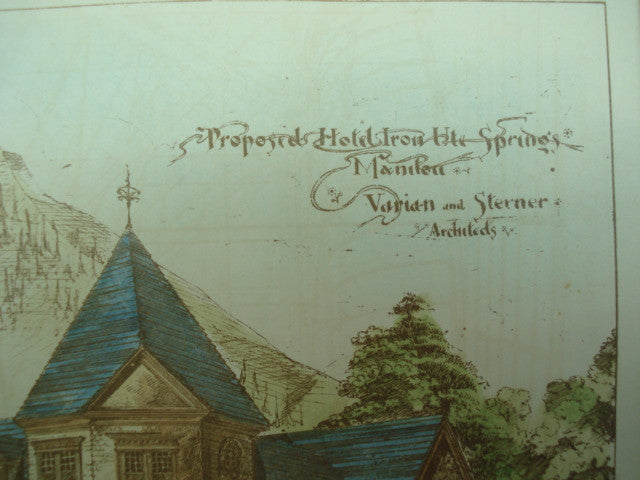 Proposed Hotel Iron Ute Springs
Manitou
Varian and Sterner
Architects